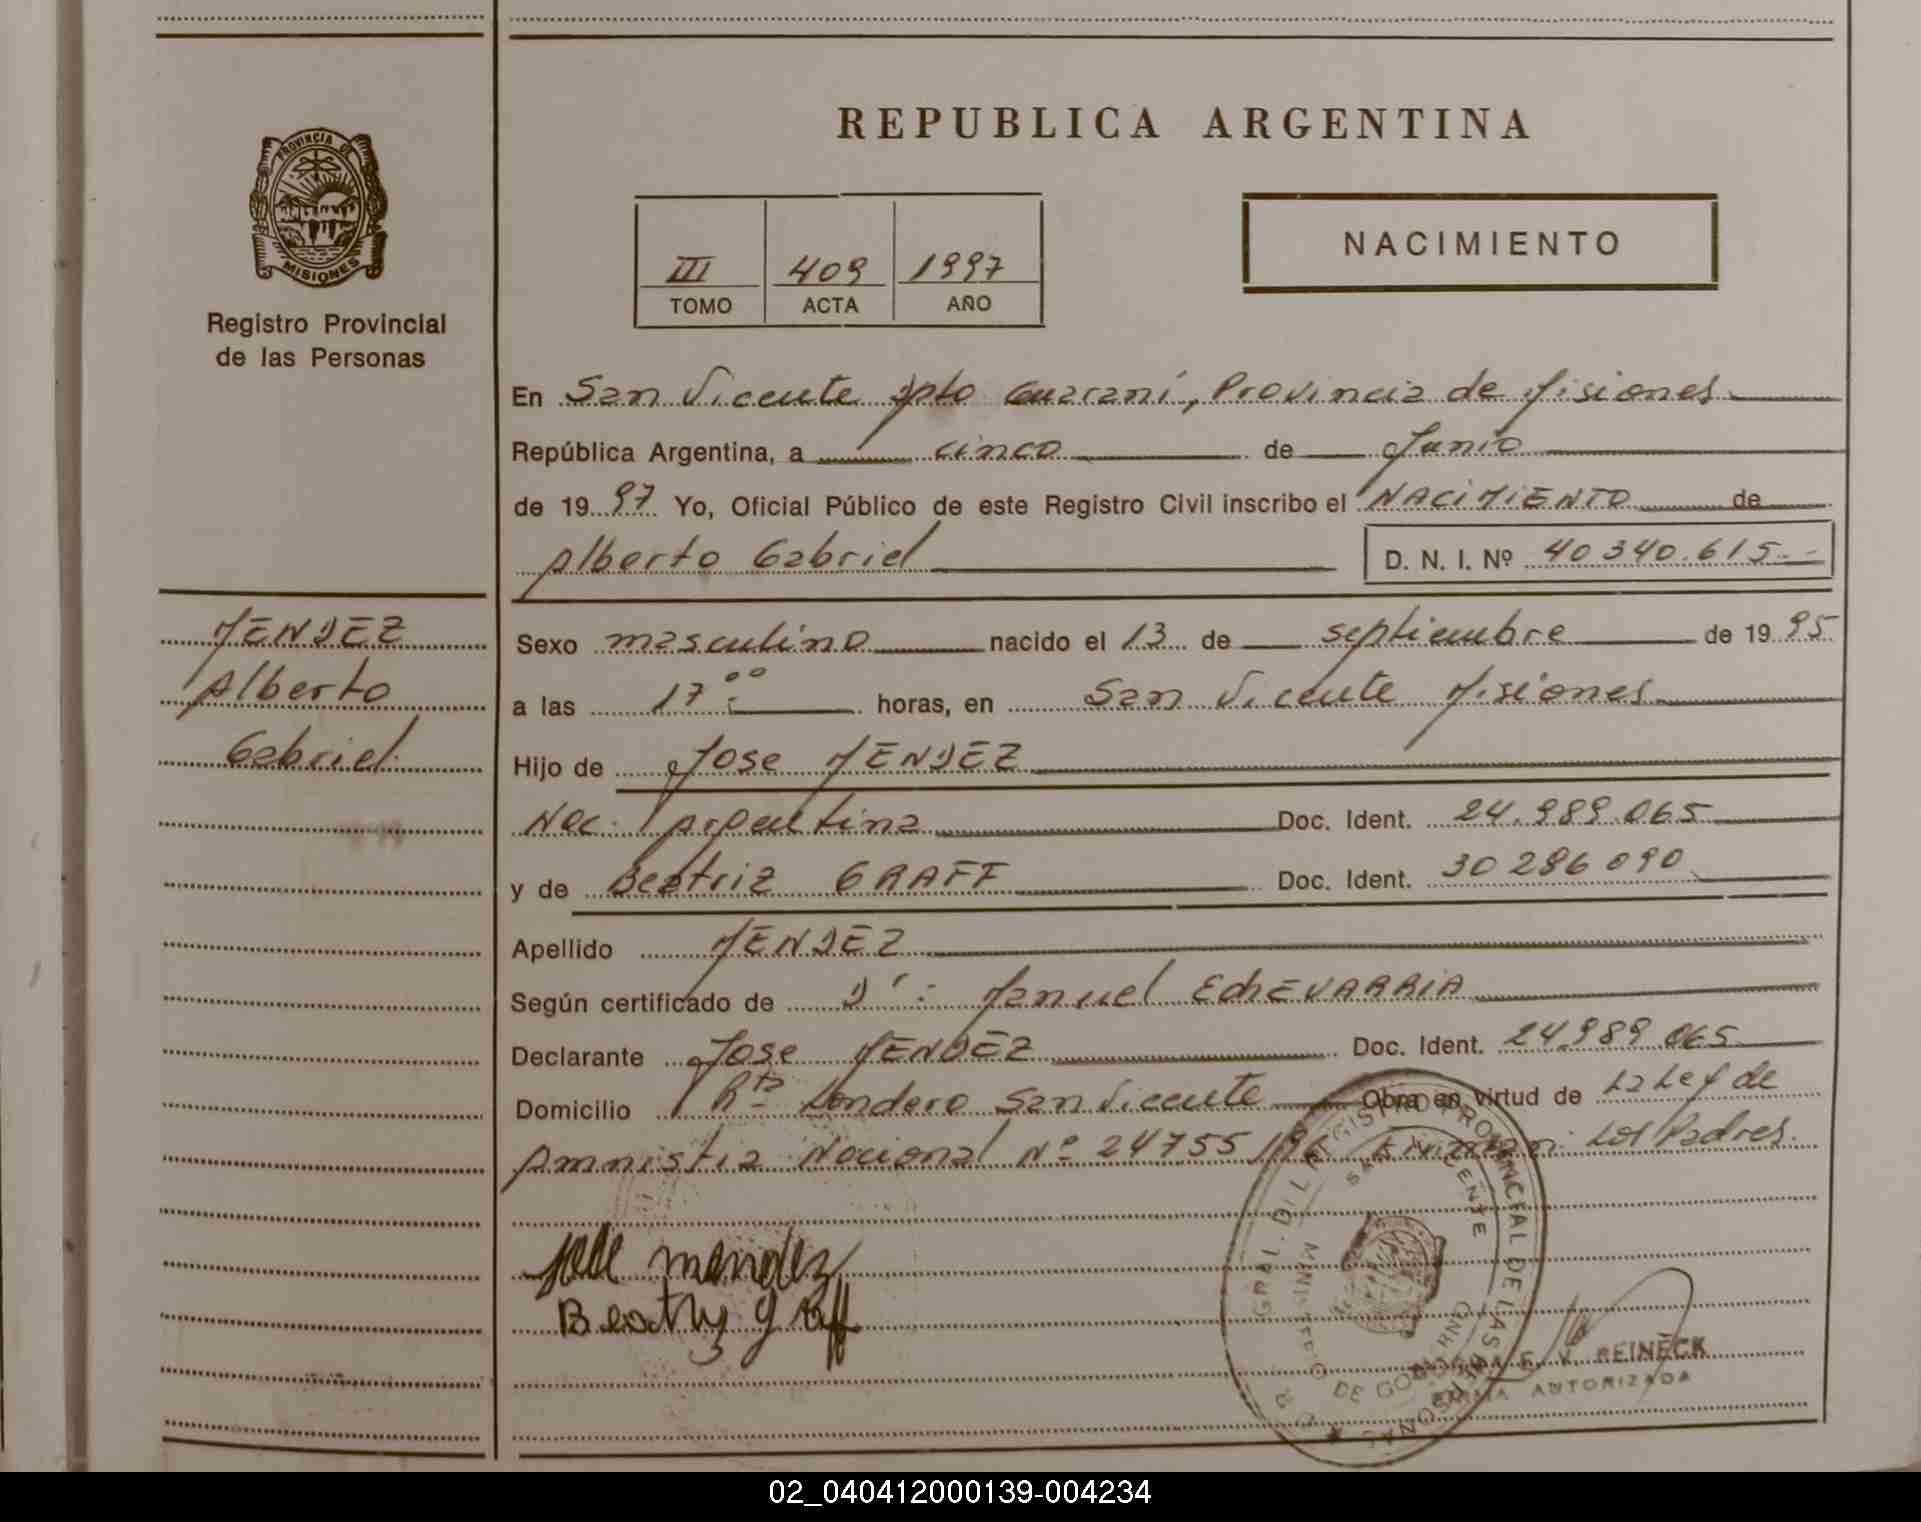 REPUBLICA ARGENTINA
PROVINCIA DE
MISIONES
Registro Provincial
de las Personas
III 409 1997
TOMO ACTA AÑO
NACIMIENTO
En San Vicente Dpto Guaraní, Provincia de Misiones
República Argentina, a cinco de Junio
de 19 97 Yo, Oficial Público de este Registro Civil inscribo el NACIMIENTO de
Alberto Gabriel D. N. I. Nº 40340.615.-
MENDEZ
Alberto
Gabriel.
Sexo masculino nacido el 13 de septiembre de 19 95
a las 17:00 horas, en San Vicente Misiones
Hijo de Jose MENDEZ
Nac. Argentina Doc. Ident. 24.989.065
y de Beatriz GRAFF Doc. Ident. 30286090
Apellido MENDEZ
Según certificado de Dr: Manuel EChEVARRIA
Declarante Jose MENDEZ Doc. Ident. 24.989.065
Domicilio Londero San Vicente Obra en virtud de la Ley de
Amnistia Nacional Nº 24755/96 Firman: Los Padres.
Jose mendez
Beatriz graff
GRAL. DEL REGISTRO PROVINCIAL DE LAS PERSONAS
SAN VICENTE
MINISTERIO DE GOBIERNO
E. V. REINECK
FIRMA AUTORIZADA
02_040412000139-004234